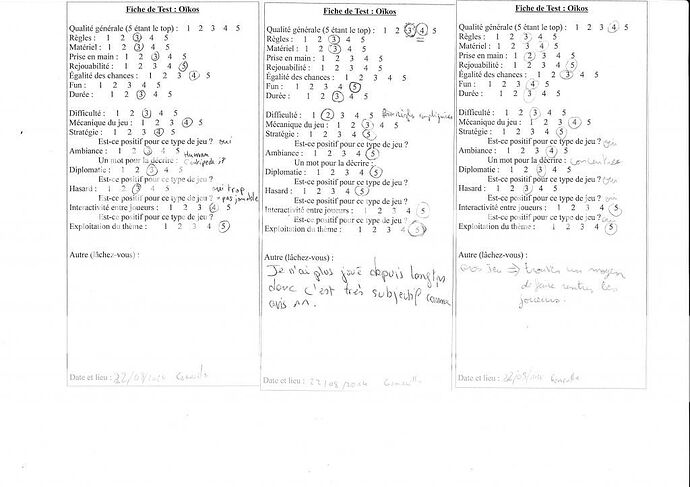 Fiche de Test : Oïkos
Qualité générale (5 étant le top) : 1 2 3 4 5
Règles : 1 2 3 4 5
Matériel : 1 2 3 4 5
Prise en main : 1 2 3 4 5
Rejouabilité : 1 2 3 4 5
Égalité des chances : 1 2 3 4 5
Fun : 1 2 3 4 5
Durée : 1 2 3 4 5
Difficulté : 1 2 3 4 5
Mécanique du jeu : 1 2 3 4 5
Stratégie : 1 2 3 4 5
Est-ce positif pour ce type de jeu ? oui
Ambiance : 1 2 3 4 5
Un mot pour la décrire : Human
Diplomatie : 1 2 3 4 5
Est-ce positif pour ce type de jeu ?
Hasard : 1 2 3 4 5 oui trop
Est-ce positif pour ce type de jeu ? pas
Interactivité entre joueurs : 1 2 3 4 5
Est-ce positif pour ce type de jeu ?
Exploitation du thème : 1 2 3 4 5
Autre (lâchez-vous) :
Date et lieu : 22/08/2014
Fiche de Test : Oïkos
Qualité générale (5 étant le top) : 1 2 3 4 5
Règles : 1 2 3 4 5
Matériel : 1 2 3 4 5
Prise en main : 1 2 3 4 5
Rejouabilité : 1 2 3 4 5
Égalité des chances : 1 2 3 4 5
Fun : 1 2 3 4 5
Durée : 1 2 3 4 5
Difficulté : 1 2 3 4 5
Mécanique du jeu : 1 2 3 4 5
Stratégie : 1 2 3 4 5
Est-ce positif pour ce type de jeu ?
Ambiance : 1 2 3 4 5
Un mot pour la décrire :
Diplomatie : 1 2 3 4 5
Est-ce positif pour ce type de jeu ?
Hasard : 1 2 3 4 5
Est-ce positif pour ce type de jeu ?
Interactivité entre joueurs : 1 2 3 4 5
Est-ce positif pour ce type de jeu ?
Exploitation du thème : 1 2 3 4 5
Autre (lâchez-vous) :
Je n'ai plus joué depuis longtps
donc c'est très subjectif comme
avis ^^.
Date et lieu : 22/08/2014
Fiche de Test : Oïkos
Qualité générale (5 étant le top) : 1 2 3 4 5
Règles : 1 2 3 4 5
Matériel : 1 2 3 4 5
Prise en main : 1 2 3 4 5
Rejouabilité : 1 2 3 4 5
Égalité des chances : 1 2 3 4 5
Fun : 1 2 3 4 5
Durée : 1 2 3 4 5
Difficulté : 1 2 3 4 5
Mécanique du jeu : 1 2 3 4 5
Stratégie : 1 2 3 4 5
Est-ce positif pour ce type de jeu ? oui
Ambiance : 1 2 3 4 5
Un mot pour la décrire :
Diplomatie : 1 2 3 4 5
Est-ce positif pour ce type de jeu ? oui
Hasard : 1 2 3 4 5
Est-ce positif pour ce type de jeu ? oui
Interactivité entre joueurs : 1 2 3 4 5
Est-ce positif pour ce type de jeu ? oui
Exploitation du thème : 1 2 3 4 5
Autre (lâchez-vous) :
gros jeu ⇒ trouver un moyen
de faire rentrer les
joueurs.
Date et lieu : 22/08/